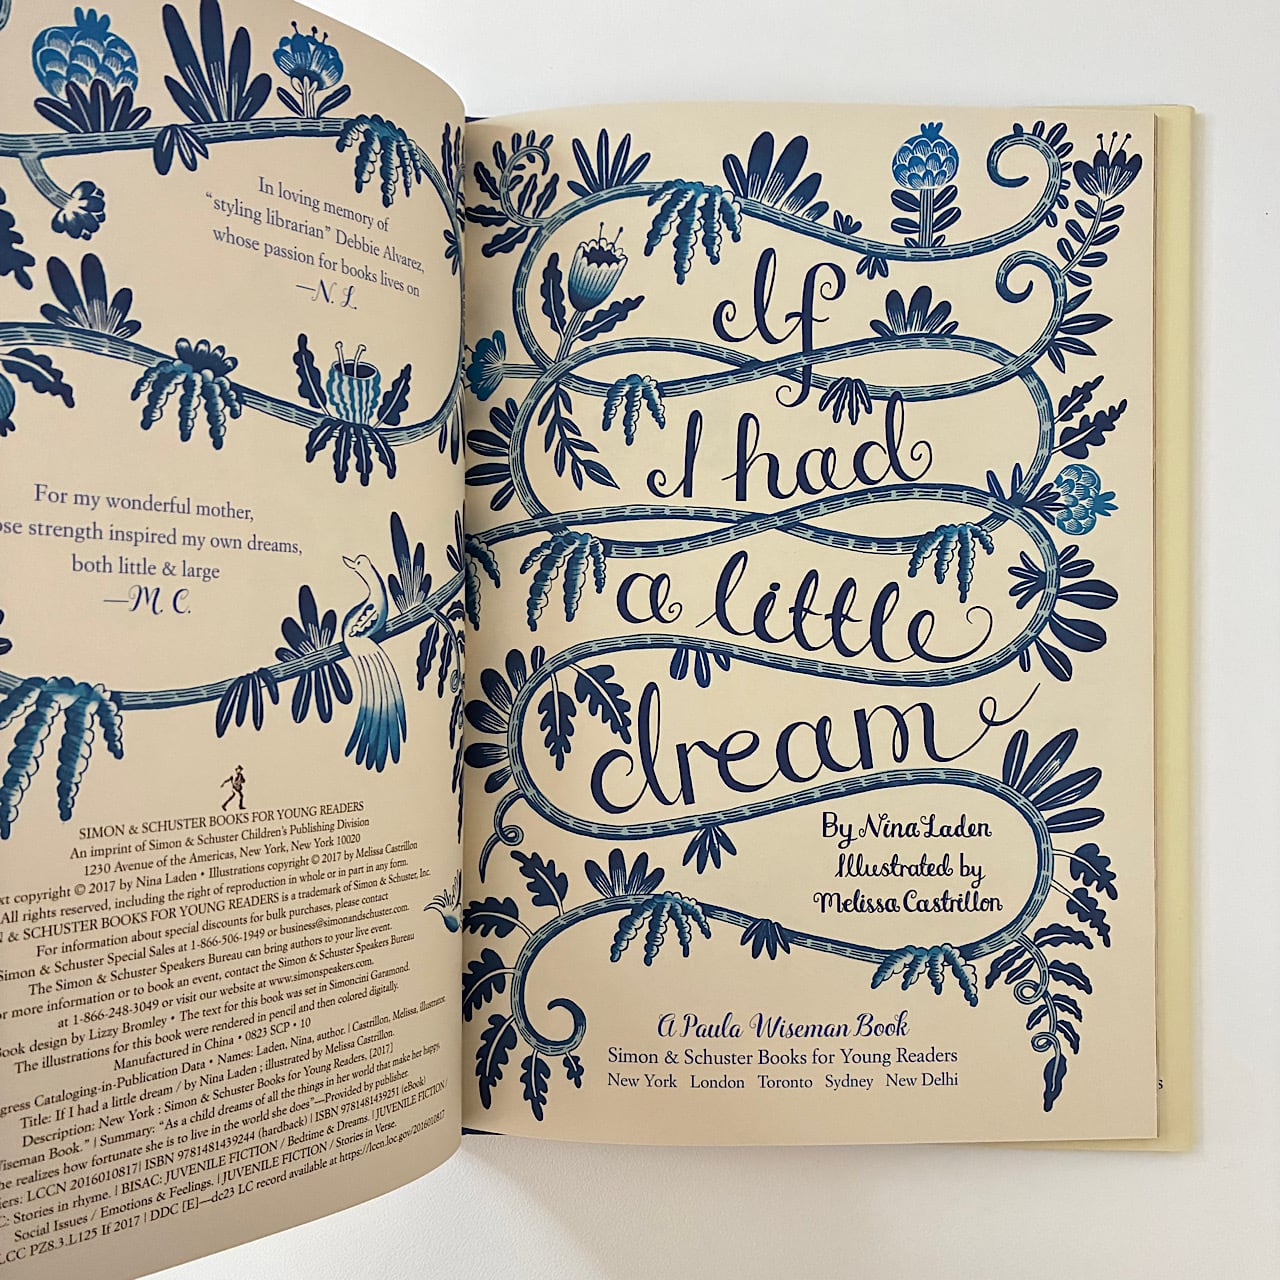 In loving memory of
“styling librarian” Debbie Alvarez,
whose passion for books lives on
—N. L.
For my wonderful mother,
strength inspired my own dreams,
both little & large
—M. C.
SIMON & SCHUSTER BOOKS FOR YOUNG READERS
An imprint of Simon & Schuster Children’s Publishing Division
1230 Avenue of the Americas, New York, New York 10020
copyright © 2017 by Nina Laden • Illustrations copyright © 2017 by Melissa Castrillon
All rights reserved, including the right of reproduction in whole or in part in any form.
& SCHUSTER BOOKS FOR YOUNG READERS is a trademark of Simon & Schuster, Inc.
For information about special discounts for bulk purchases, please contact
Simon & Schuster Special Sales at 1-866-506-1949 or business@simonandschuster.com.
The Simon & Schuster Speakers Bureau can bring authors to your live event.
more information or to book an event, contact the Simon & Schuster Speakers Bureau
at 1-866-248-3049 or visit our website at www.simonspeakers.com.
Book design by Lizzy Bromley • The text for this book was set in Simoncini Garamond.
The illustrations for this book were rendered in pencil and then colored digitally.
Manufactured in China • 0823 SCP • 10
Cataloging-in-Publication Data • Names: Laden, Nina, author. | Castrillon, Melissa, illustrator.
Title: If I had a little dream / by Nina Laden ; illustrated by Melissa Castrillon.
Description: New York : Simon & Schuster Books for Young Readers, [2017]
Wiseman Book.” | Summary: “As a child dreams of all the things in her world that make her happy,
he realizes how fortunate she is to live in the world she does”—Provided by publisher.
LCCN 2016010817| ISBN 9781481439244 (hardback) | ISBN 9781481439251 (eBook)
Stories in rhyme. | BISAC: JUVENILE FICTION / Bedtime & Dreams. | JUVENILE FICTION /
Social Issues / Emotions & Feelings. | JUVENILE FICTION / Stories in Verse.
LCC PZ8.3.L125 If 2017 | DDC [E]—dc23 LC record available at https://lccn.loc.gov/2016010817
If
I had
a little
dream
By Nina Laden
Illustrated by
Melissa Castrillon
A Paula Wiseman Book
Simon & Schuster Books for Young Readers
New York London Toronto Sydney New Delhi